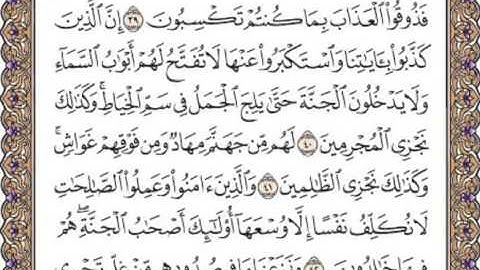 فَذُوقُوا۟ ٱلْعَذَابَ بِمَا كُنتُمْ تَكْسِبُونَ ٣٩ إِنَّ ٱلَّذِينَ
كَذَّبُوا۟ بِـَٔايَـٰتِنَا وَٱسْتَكْبَرُوا۟ عَنْهَا لَا تُفَتَّحُ لَهُمْ أَبْوَٰبُ ٱلسَّمَآءِ
وَلَا يَدْخُلُونَ ٱلْجَنَّةَ حَتَّىٰ يَلِجَ ٱلْجَمَلُ فِى سَمِّ ٱلْخِيَاطِ ۚ وَكَذَٰلِكَ
نَجْزِى ٱلْمُجْرِمِينَ ٤٠ لَهُم مِّن جَهَنَّمَ مِهَادٌ وَمِن فَوْقِهِمْ غَوَاشٍ ۚ
وَكَذَٰلِكَ نَجْزِى ٱلظَّـٰلِمِينَ ٤١ وَٱلَّذِينَ ءَامَنُوا۟ وَعَمِلُوا۟ ٱلصَّـٰلِحَـٰتِ
لَا نُكَلِّفُ نَفْسًا إِلَّا وُسْعَهَآ أُو۟لَـٰٓئِكَ أَصْحَـٰبُ ٱلْجَنَّةِ ۖ هُمْ
فِيهَا خَـٰلِدُونَ ٤٢ وَنَزَعْنَا مَا فِى صُدُورِهِم مِّنْ غِلٍّ تَجْرِى